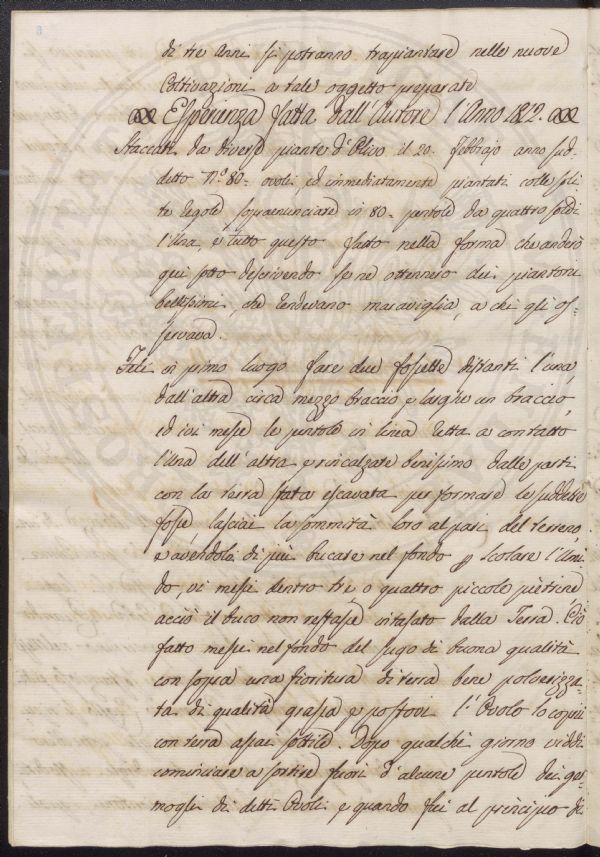 di tre Anni si potranno trapiantare nelle nuove
Coltivazioni a tale oggetto preparate
Esperienza fatta dall'Autore l'Anno 1812.
Staccati da diverse piante d'Olivo il 20. Febbrajo anno sud-
detto N.º 80. ovoli ed immediatamente piantati colle soli-
te regole sopraenunciate in 80. pentole da quattro soldi
l'una, e tutto questo fatto nella forma che anderò
qui sotto descrivendo se ne ottennero dei piantoni
bellissimi, che rendevano maraviglia, a chi gli os-
servava.
Feci in primo luogo fare due fossette distanti l'una
dall'altra circa mezzo braccio e larghe un braccio,
ed ivi messe le pentole in linea retta a contatto
l'una dell'altra e rincalzate benissimo dalle parti
con la terra stata escavata per formare le suddette
fosse lasciai la sommità loro al pari del terreno,
e avendole di più bucate nel fondo p scolare l'umi-
do, vi messi dentro tre, o quattro piccole pietrine
acciò il buco non restasse intasato dalla Terra. Ciò
fatto messi nel fondo del sugo di buona qualità
con sopra una fioritura di terra bene polverizza-
ta di qualità grassa e postovi l'Ovolo lo coprii
con terra assai sottile. Dopo qualche giorno viddi
cominciare a sortire fuori d'alcune pentole dei ger-
mogli di detti Ovoli e quando fui al principio di